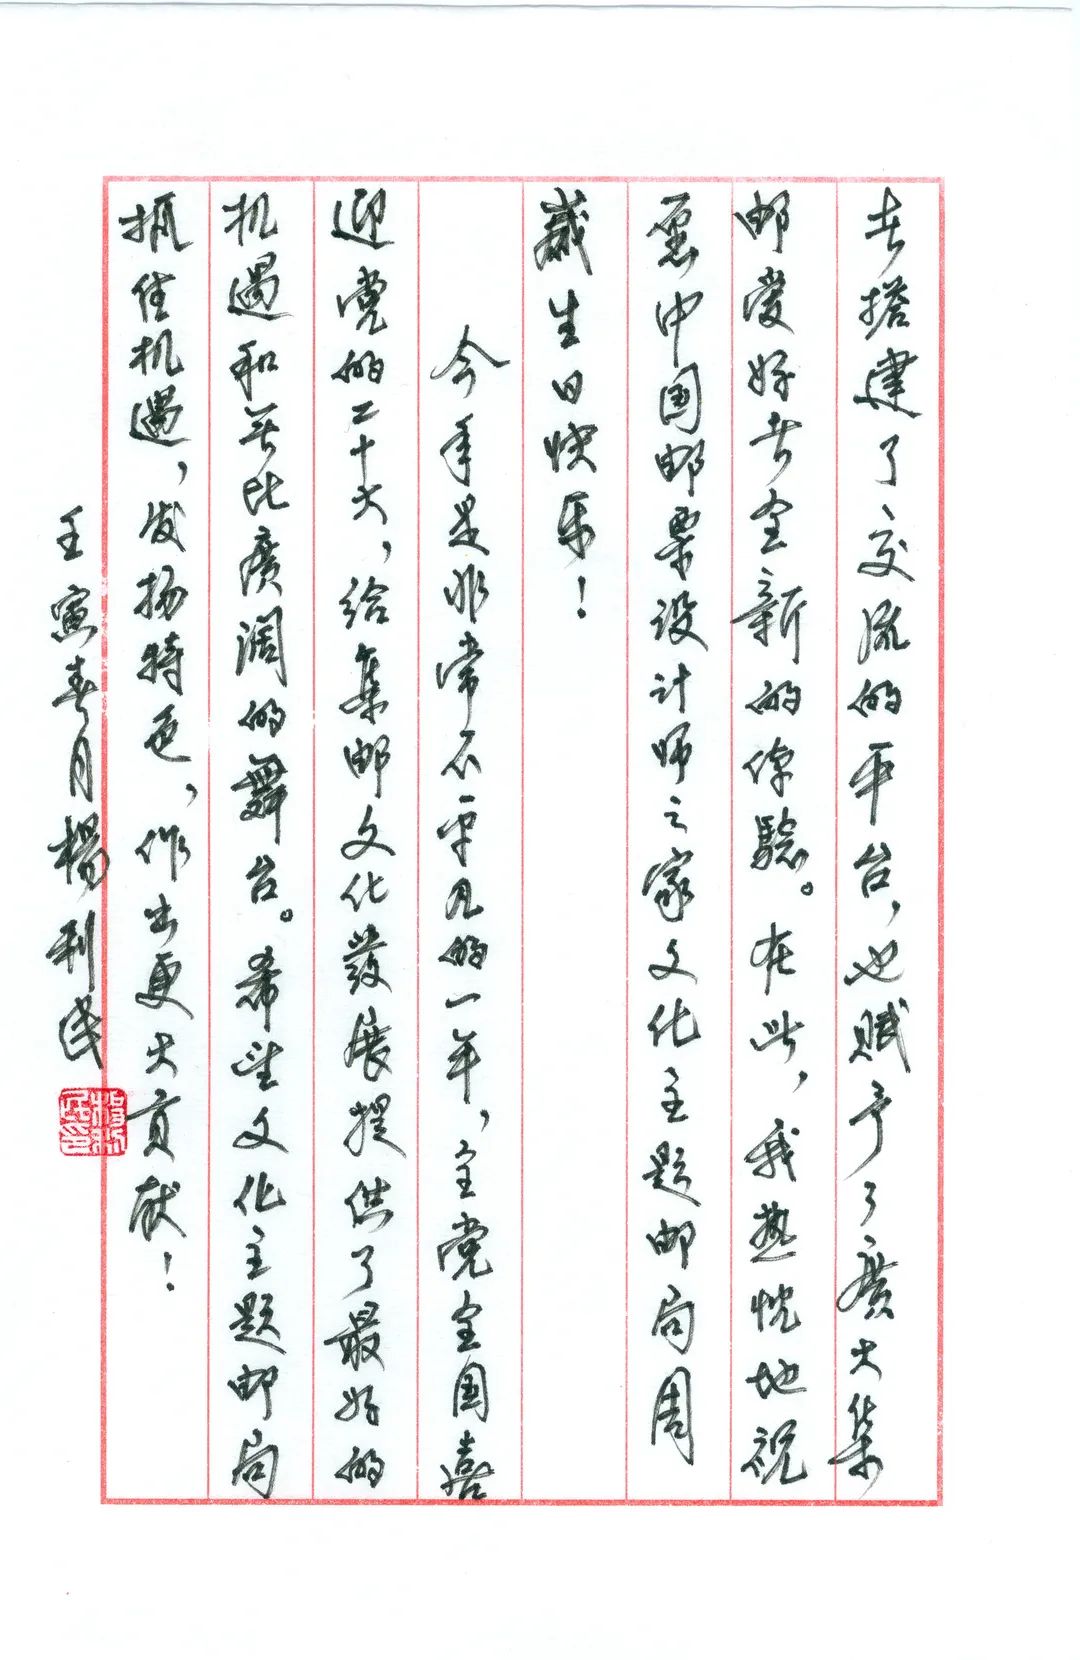 者搭建了交流的平台，也赋予了廣大集
邮爱好者全新的体驗。在此，我热忱地祝
愿中国邮票设计师之家文化主题邮局周
歲生日快乐！
今年是非常不平凡的一年，全党全国喜
迎党的二十大，给集邮文化發展提供了最好的
机遇和无比廣阔的舞台。希望文化主题邮局
抓住机遇，发扬特色，作出更大貢献！
壬寅春月楊利民